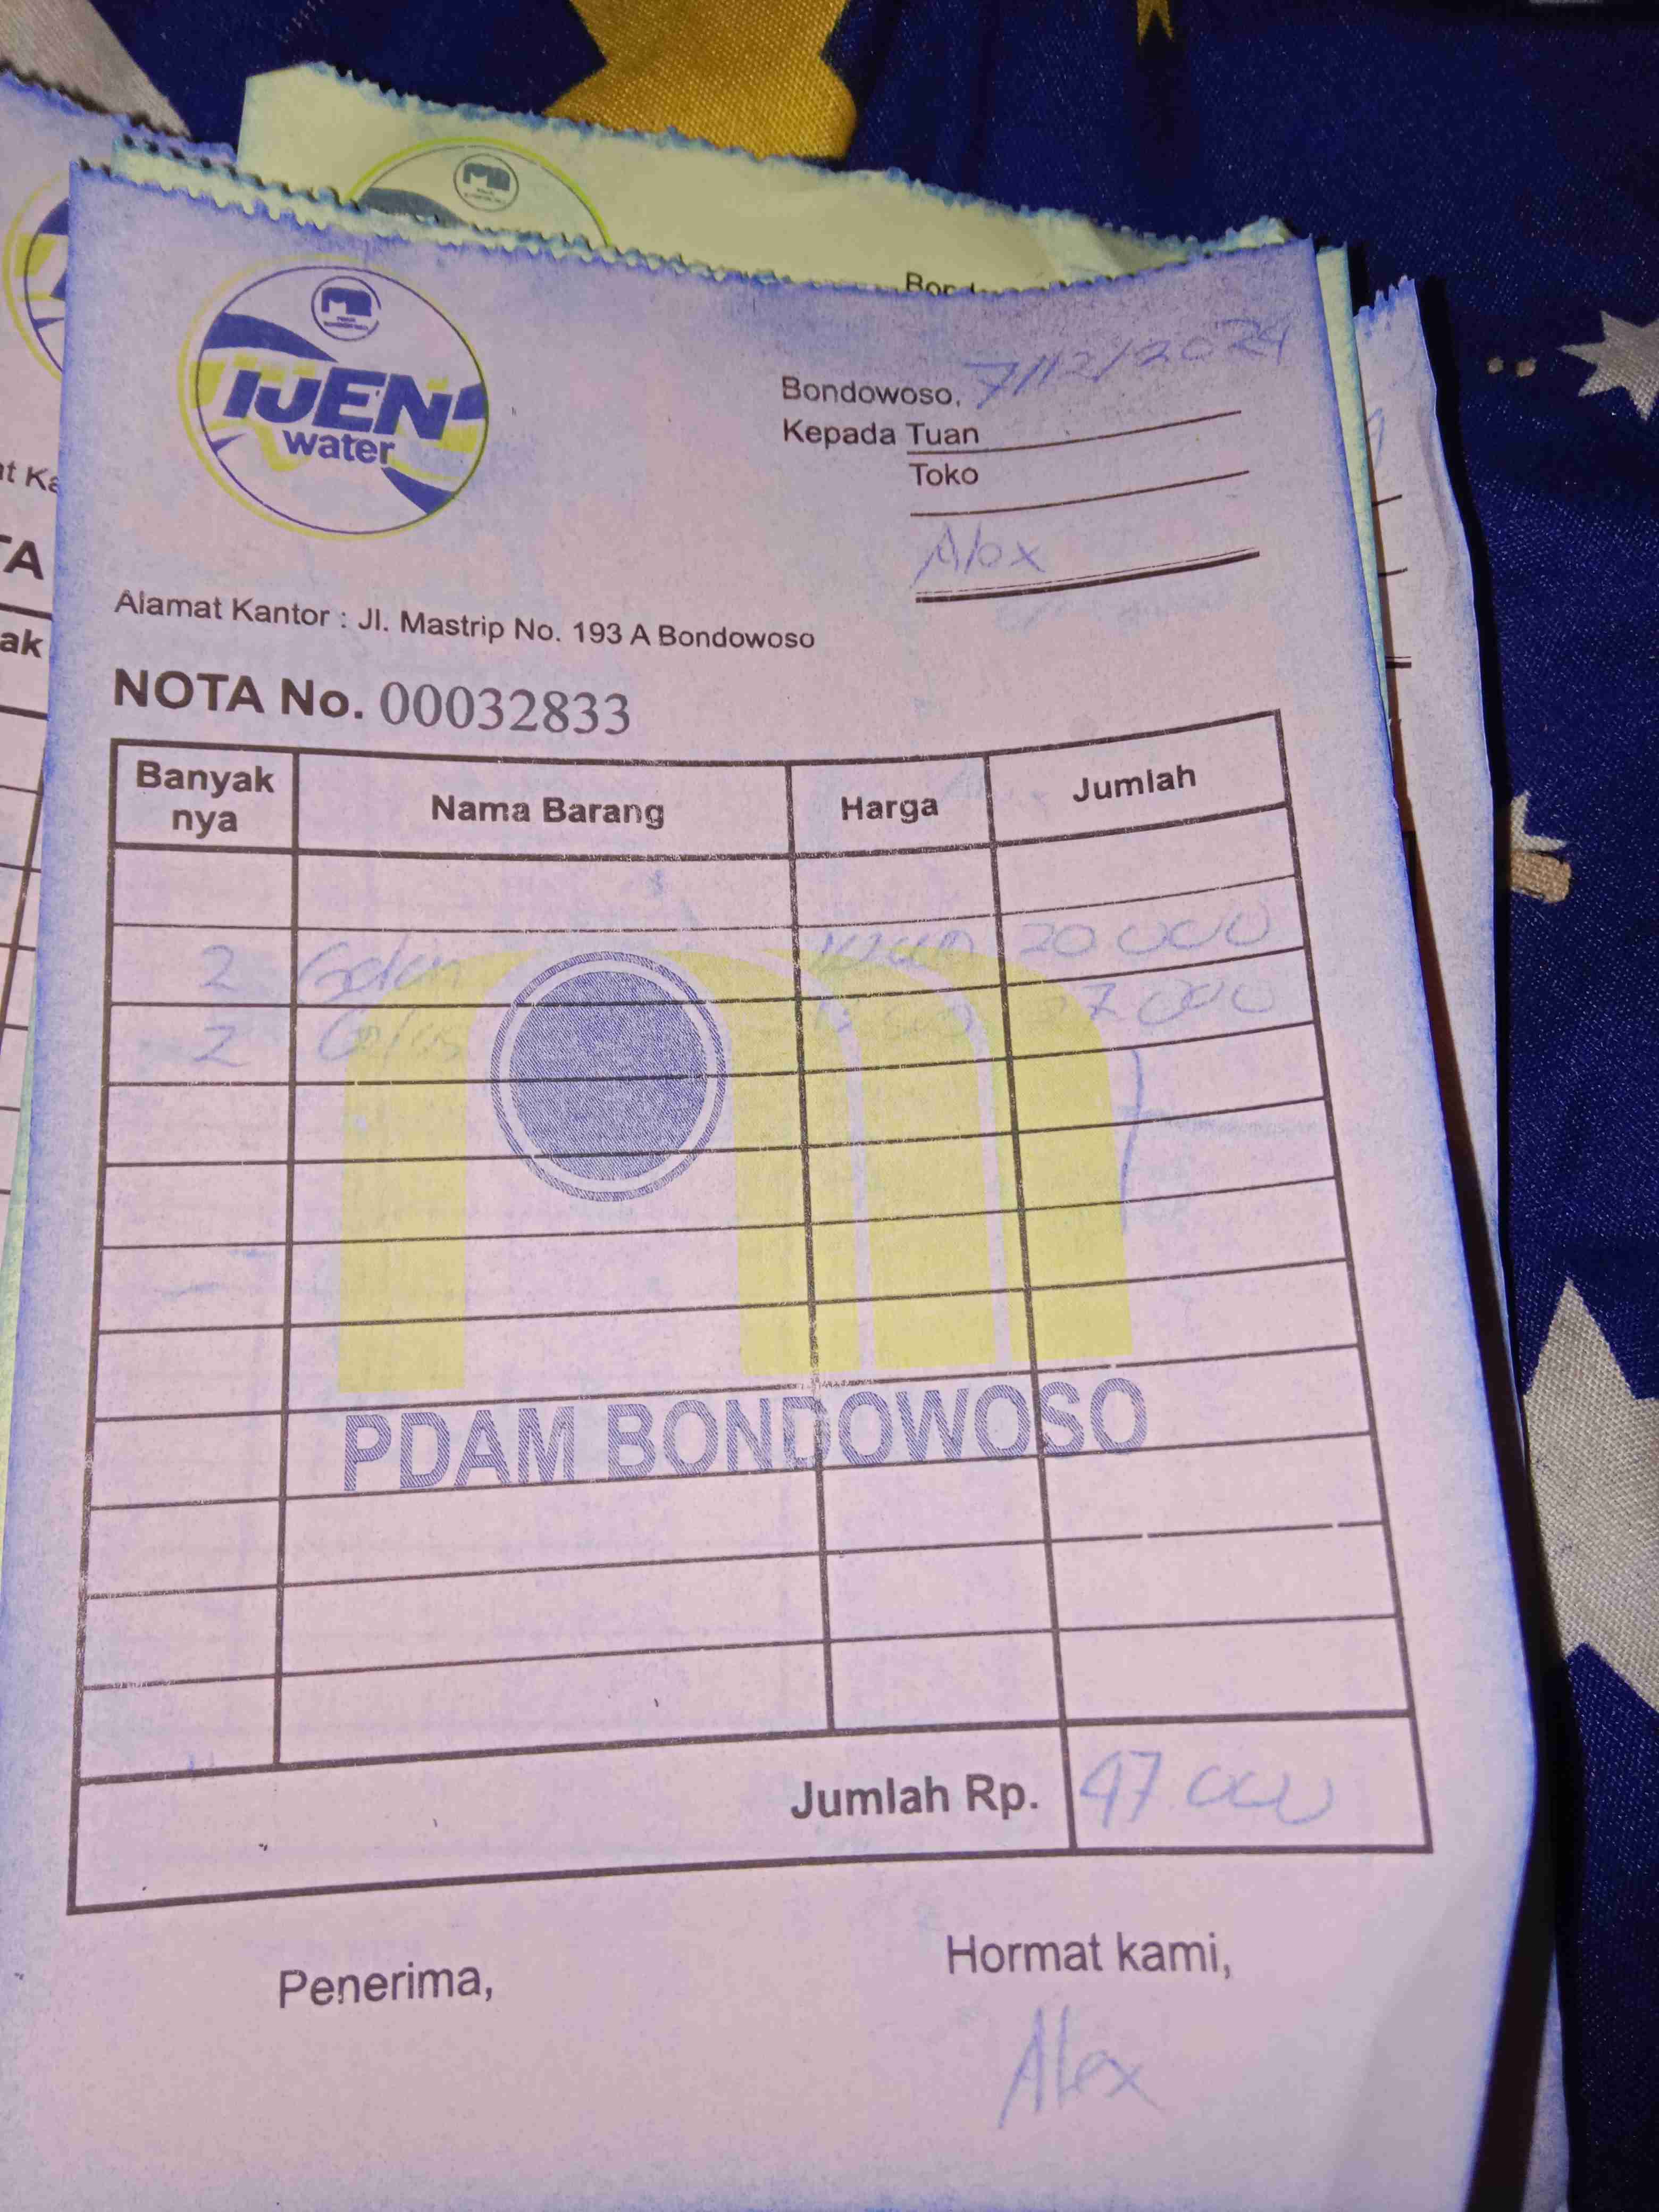 IJEN
water
Bondowoso, 7/12/2024
Kepada Tuan
Toko
Alex
Alamat Kantor : Jl. Mastrip No. 193 A Bondowoso
NOTA No. 00032833
Banyak nya Nama Barang Harga Jumlah
2 20.000
2 27.000
PDAM BONDOWOSO
Jumlah Rp. 47.000
Penerima, Hormat kami,
Alex